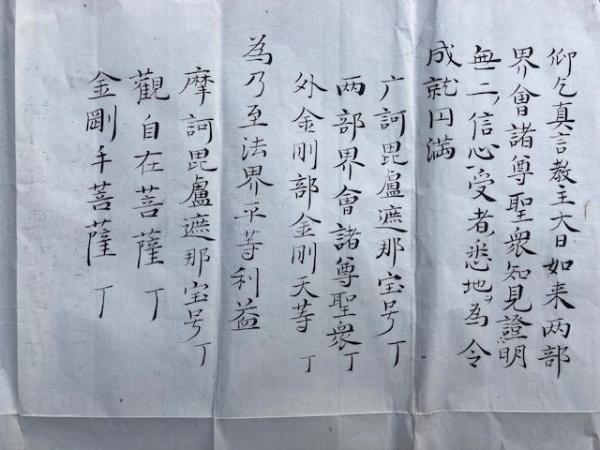 仰乞真言教主大日如来両部
界會諸尊聖衆知見證明
無二ノ信心受者ノ悉地ヲ為令
成就円満
广訶毘盧遮那宝号丁
両部界會諸尊聖衆丁
外金剛部金剛天等丁
為乃至法界平等利益
摩訶毘盧遮那宝号丁
觀自在菩薩丁
金剛手菩薩丁